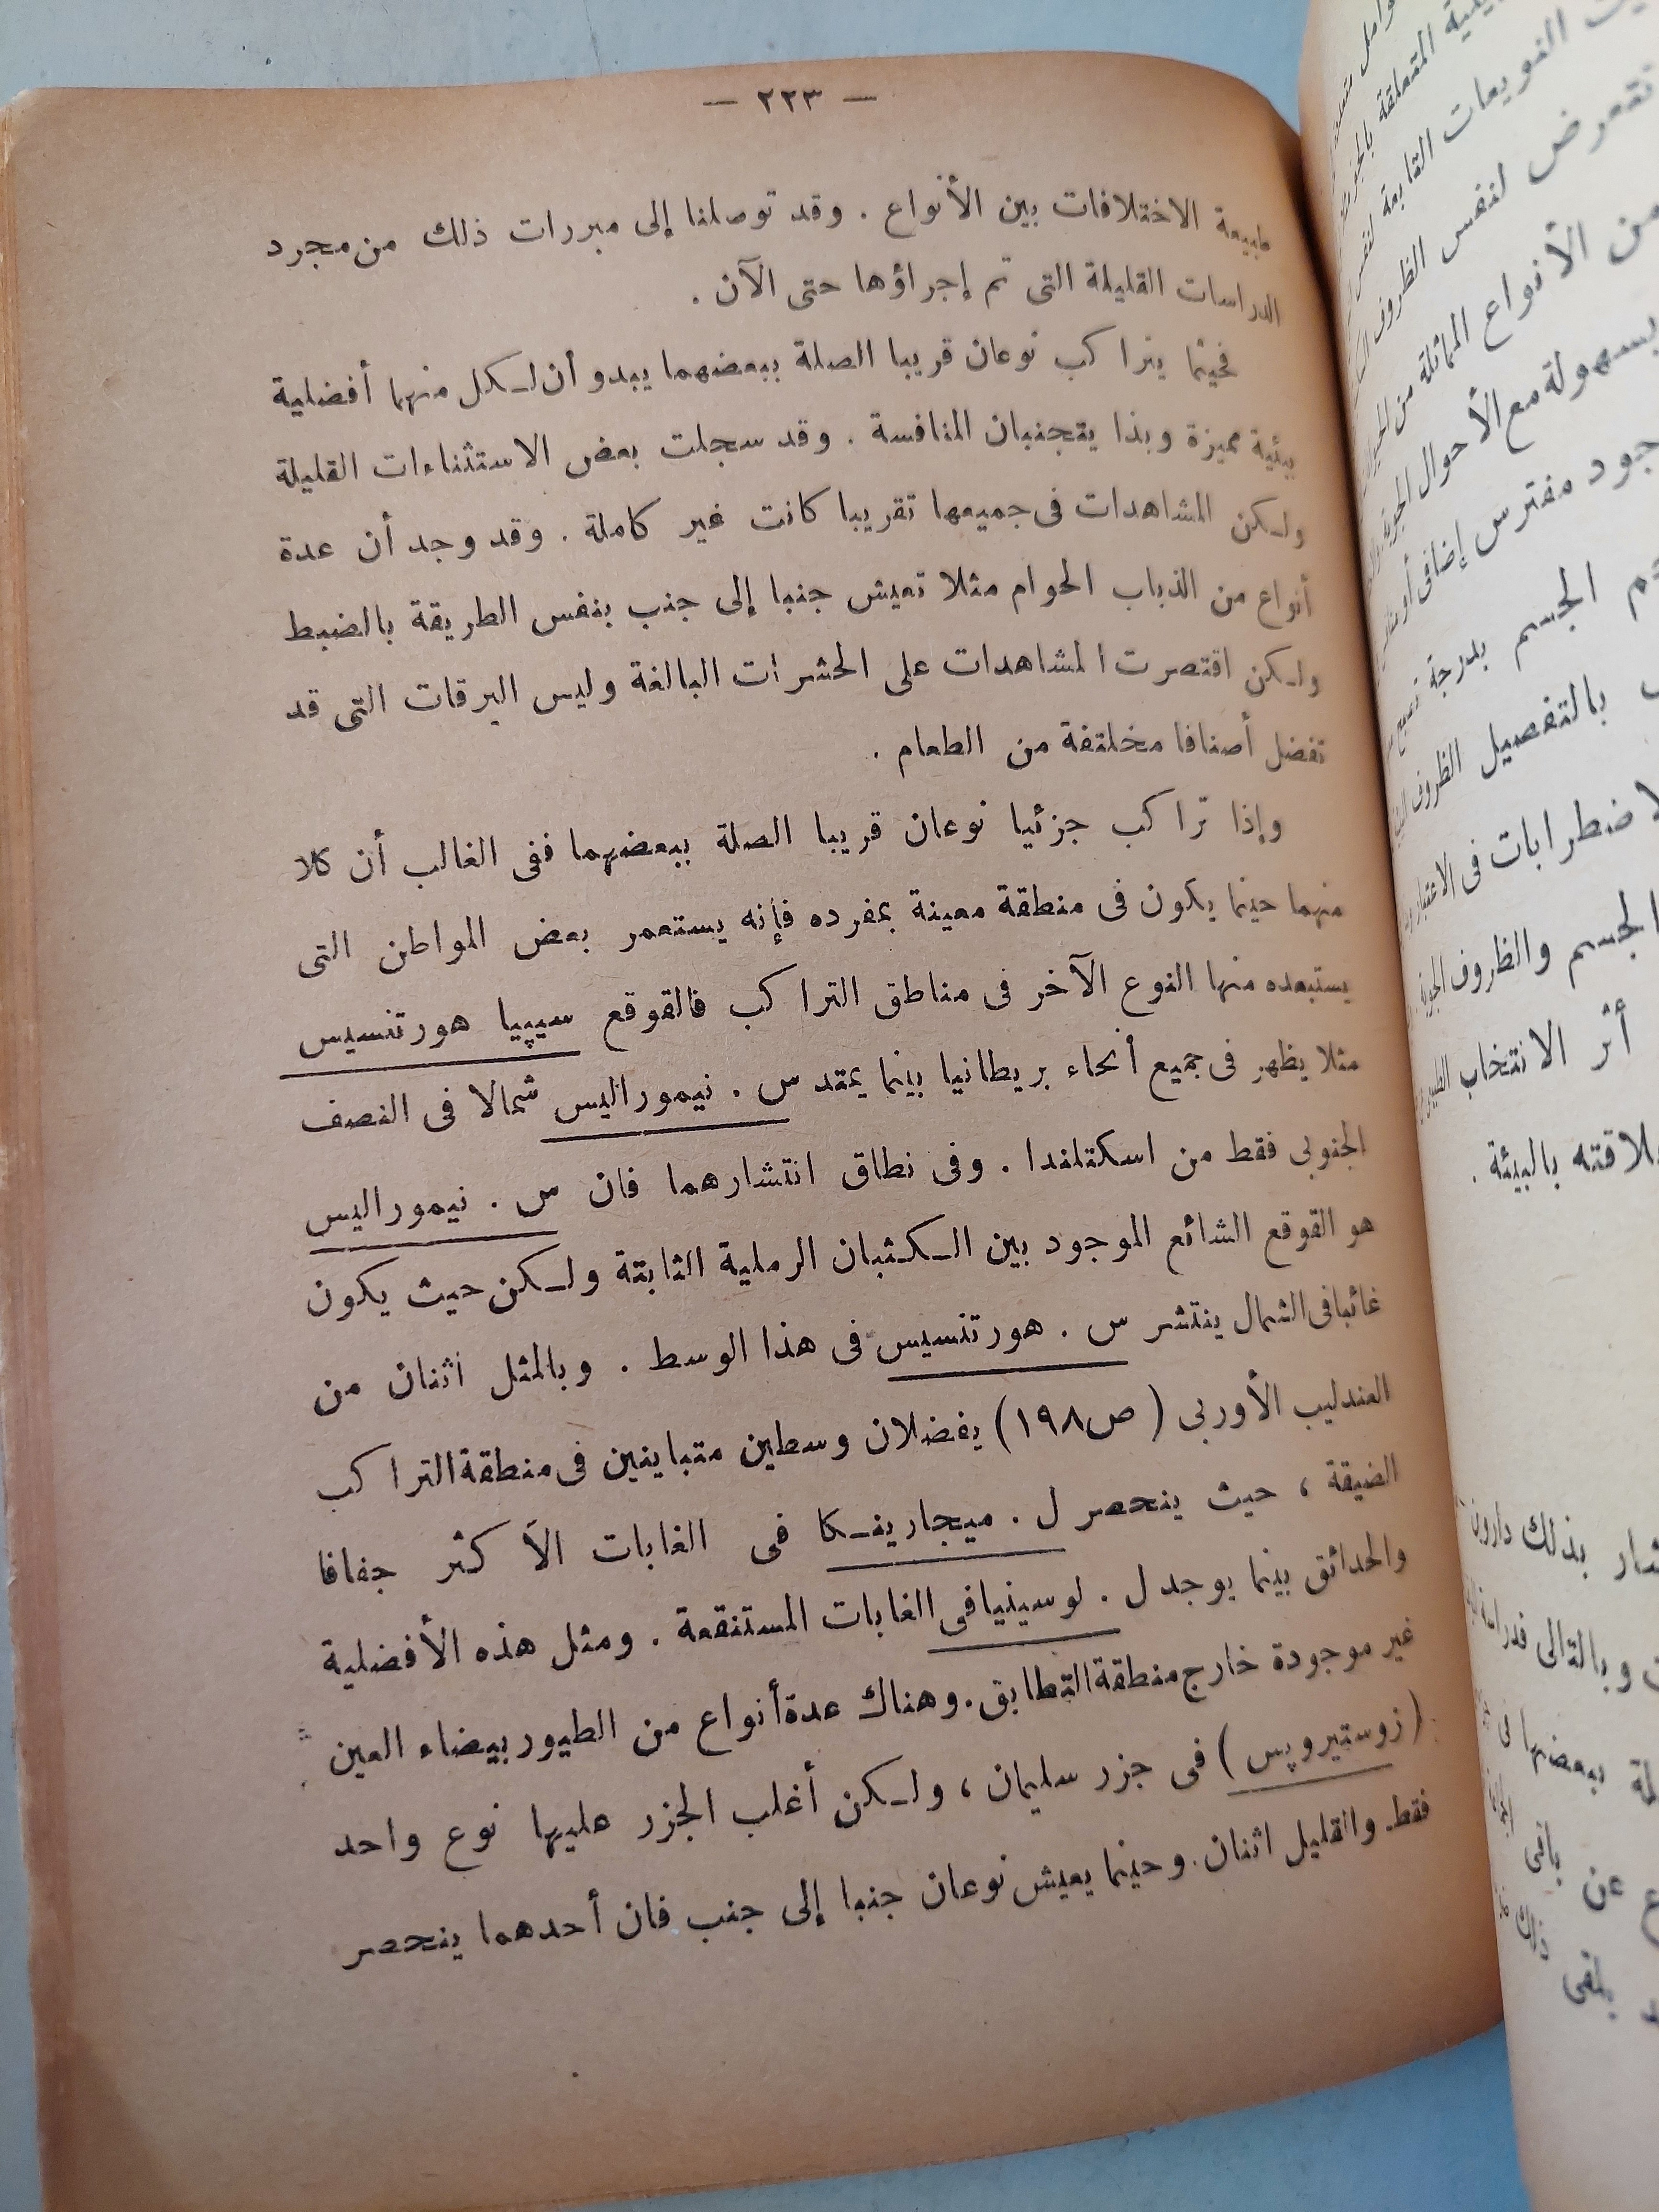 — ٢٢٣ —
طبيعة الاختلافات بين الأنواع . وقد توصلنا إلى مبررات ذلك من مجرد
الدراسات القليلة التى تم إجراؤها حتى الآن .
فحينما يتراكب نوعان قريبا الصلة ببعضهما يبدو أن لكل منهما أفضلية
بيئية مميزة وبذا يتجنبان المنافسة . وقد سجلت بعض الاستثناءات القليلة
ولكن المشاهدات فى جميعها تقريبا كانت غير كاملة . وقد وجد أن عدة
أنواع من الذباب الحوام مثلا تعيش جنبا إلى جنب بنفس الطريقة بالضبط
ولكن اقتصرت المشاهدات على الحشرات البالغة وليس اليرقات التى قد
تفضل أصنافا مخلتفة من الطعام .
وإذا تراكب جزئيا نوعان قريبا الصلة ببعضهما ففى الغالب أن كلا
منهما حينما يكون فى منطقة معينة بمفرده فإنه يستعمر بعض المواطن التى
يستبعده منها النوع الآخر فى مناطق التراكب فالقوقع سيپيا هورتنسيس
مثلا يظهر فى جميع أنحاء بريطانيا بينما يمتد س . نيموراليس شمالا فى النصف
الجنوبى فقط من اسكتلندا . وفى نطاق انتشارهما فان س . نيموراليس
هو القوقع الشائع الموجود بين الكثبان الرملية الثابتة ولكن حيث يكون
غائبا فى الشمال ينتشر س . هورتنسيس فى هذا الوسط . وبالمثل اثنان من
العندليب الأوربى ( ص١٩٨ ) يفضلان وسطين متباينين فى منطقة التراكب
الضيقة ، حيث ينحصر ل . ميجارينكا فى الغابات الأكثر جفافا
والحدائق بينما يوجد ل . لوسينيا فى الغابات المستنقعة . ومثل هذه الأفضلية
غير موجودة خارج منطقة التطابق . وهناك عدة أنواع من الطيور بيضاء العين
( زوستيروپس ) فى جزر سليمان ، ولكن أغلب الجزر عليها نوع واحد
فقط والقليل اثنان . وحينما يعيش نوعان جنبا إلى جنب فان أحدهما ينحصر
المتعلقة
النويعات التابعة لنفس
تتعرض لنفس الظروف
من الأنواع المماثلة من
بسهولة مع الأحوال الجوية
مفترس إضافى أو
الجسم بدرجة
بالتفصيل الظروف
فى الاعتبار
الجسم والظروف الجوية
أثر الانتخاب
بالبيئة .
بذلك داروين
وبالتالى
ببعضها فى
عن باقى